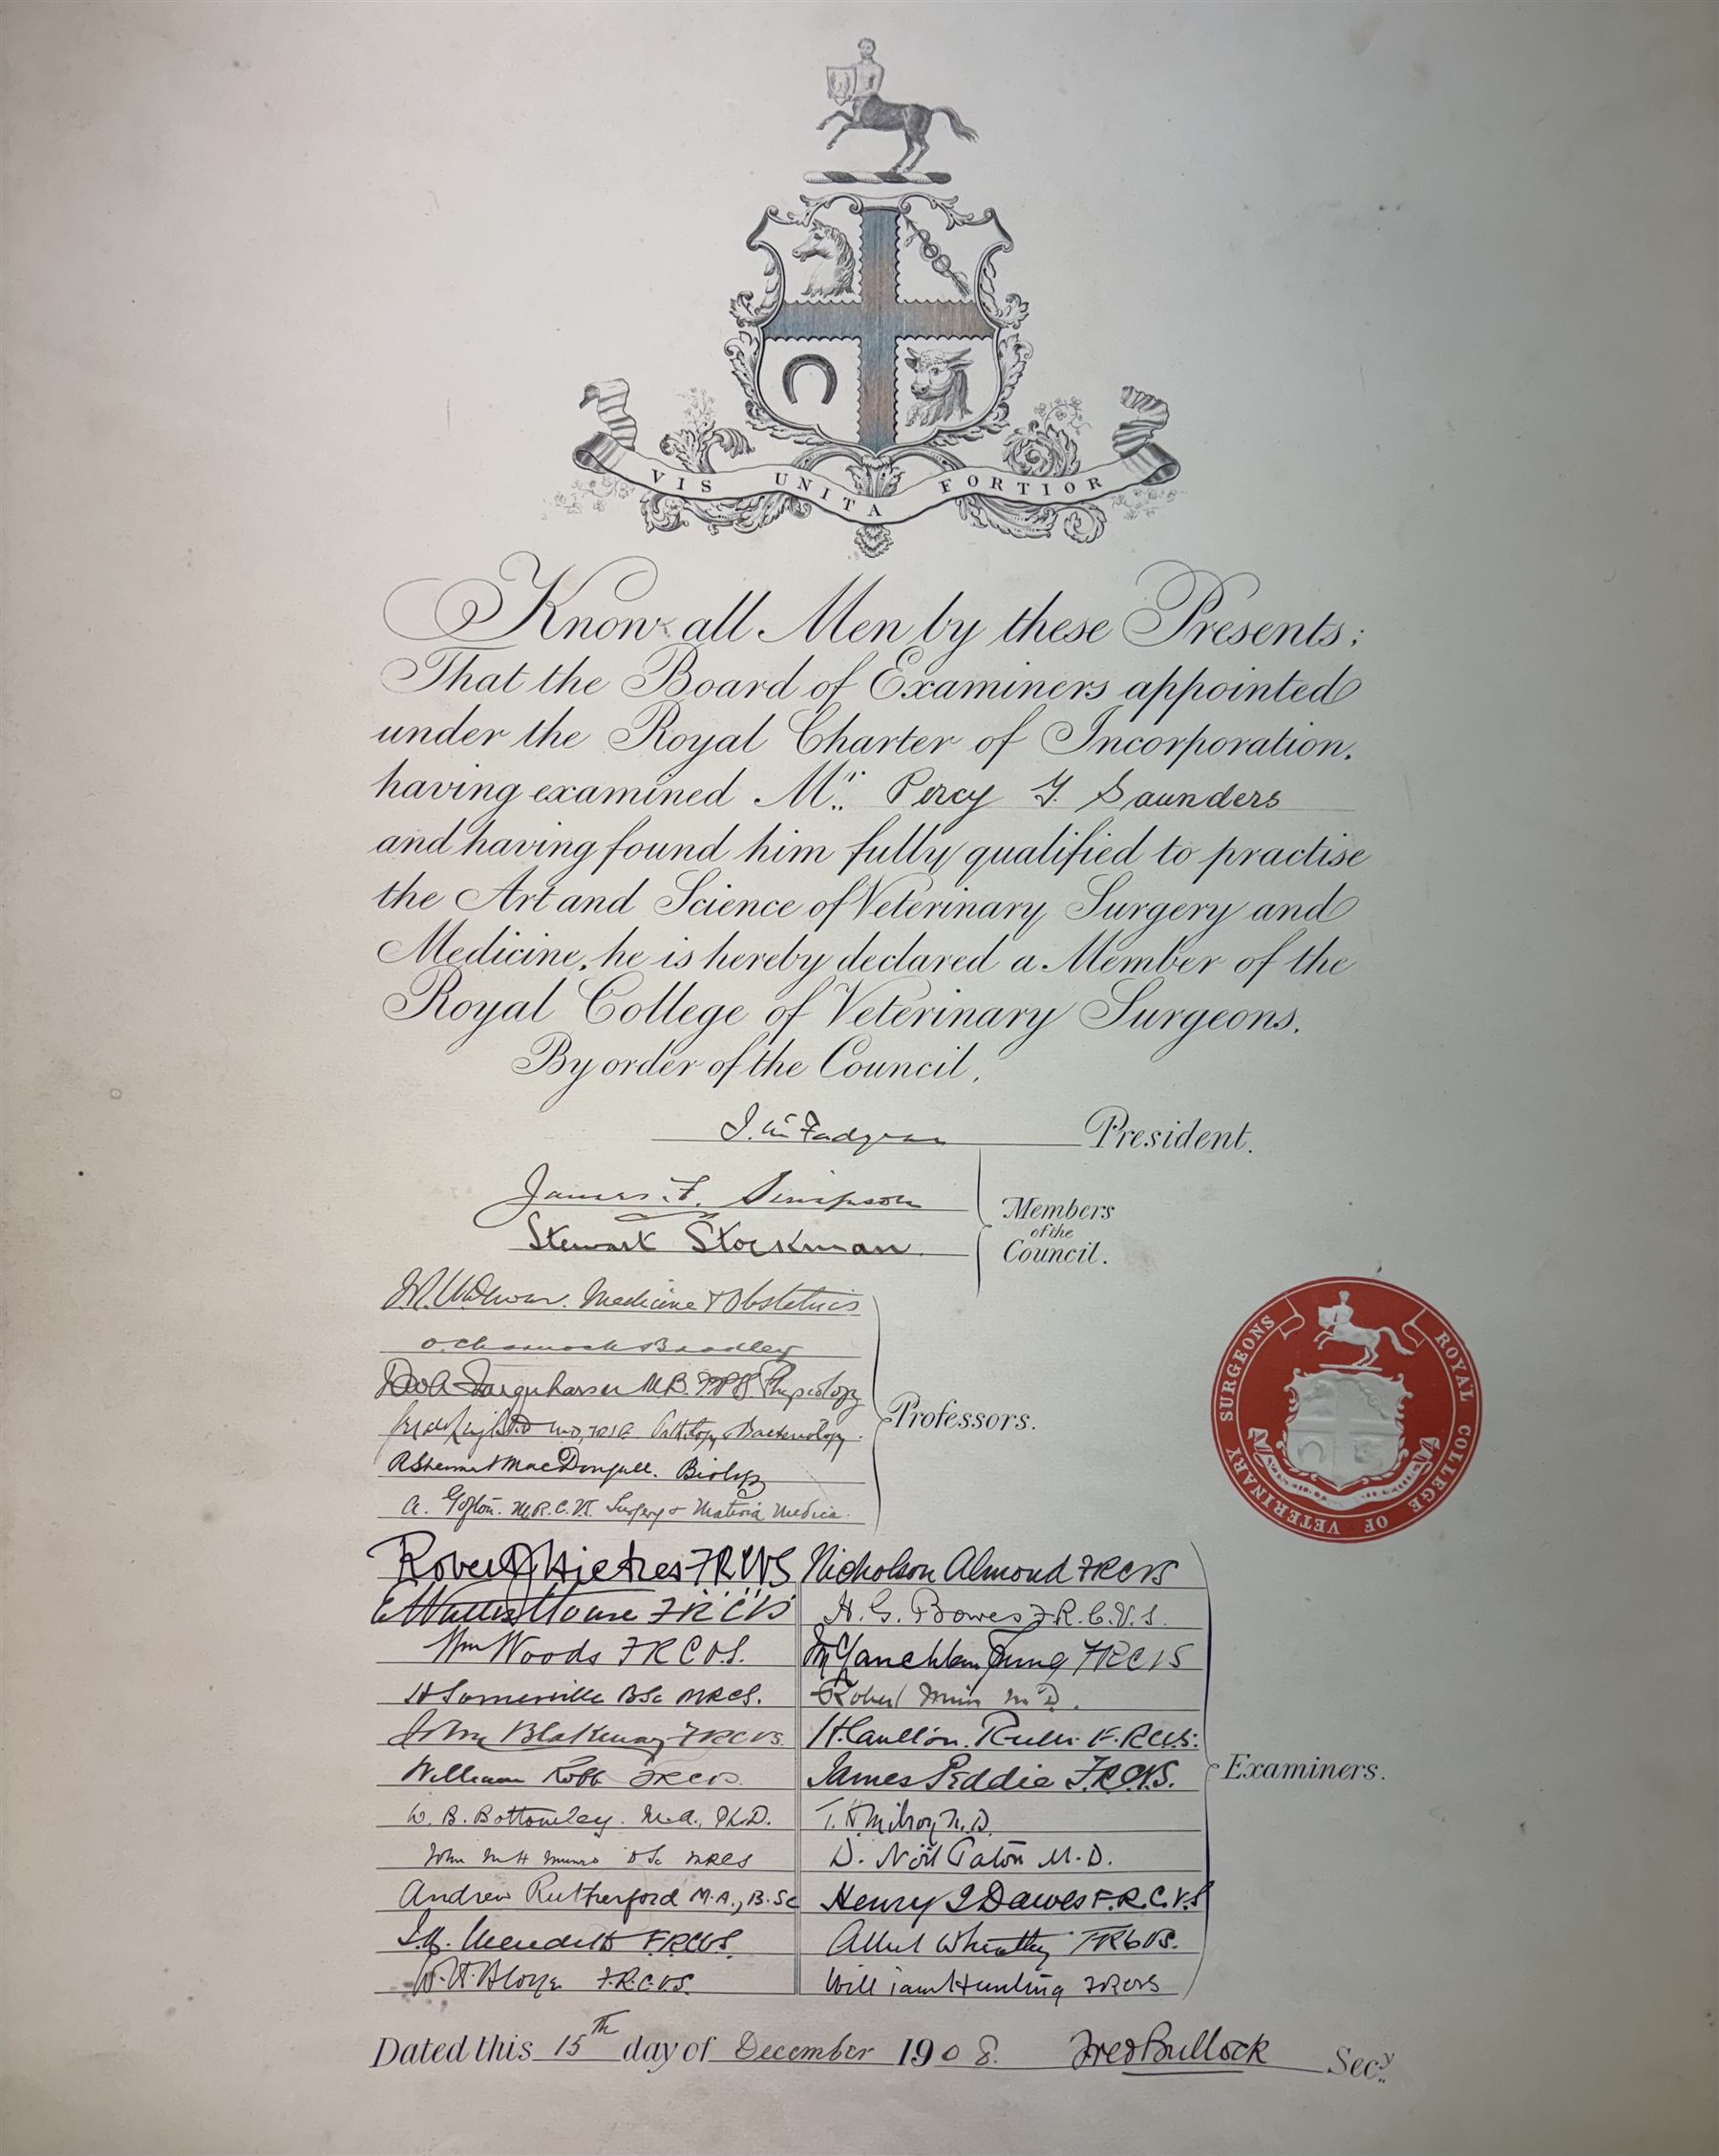 VIS UNITA FORTIOR
Know all Men by these Presents;
That the Board of Examiners appointed
under the Royal Charter of Incorporation,
having examined Mr. Percy G. Saunders
and having found him fully qualified to practise
the Art and Science of Veterinary Surgery and
Medicine, he is hereby declared a Member of the
Royal College of Veterinary Surgeons.
By order of the Council,
J. McFadyean President.
James F. Simpson
Stewart Stockman
Members
of the
Council.
Medicine & Obstetrics
O. Charnock Bradley
Farquharson M.B. Physiology
Pathology & Bacteriology.
MacDougall. Biology
A. Gofton. M.R.C.V.S. Surgery & Materia Medica.
Professors.
ROYAL COLLEGE OF VETERINARY SURGEONS
FRCVS Nicholson Almond FRCVS
FRCVS H. G. Bowes F.R.C.V.S.
Wm Woods FRCVS. Young FRCVS
H Somerville BSc MRCS. Robert Muir M.D.
John Blakeway FRCVS. F.R.C.V.S.
William Robb FRCVS. James Peddie F.R.C.V.S.
W. B. Bottomley. M.A., Ph.D. T. H. Milroy M.D.
John Munro DSc MRCS D. Noël Paton M.D.
Andrew Rutherford M.A., B.Sc Henry J Dawes F.R.C.V.S
Meredith F.RCVS. Albert Wheatley FRCVS.
W. H. Bloye F.R.C.V.S. William Hunting FRCVS
Examiners.
Dated this 15th day of December 1908. Fred Bullock Secy.